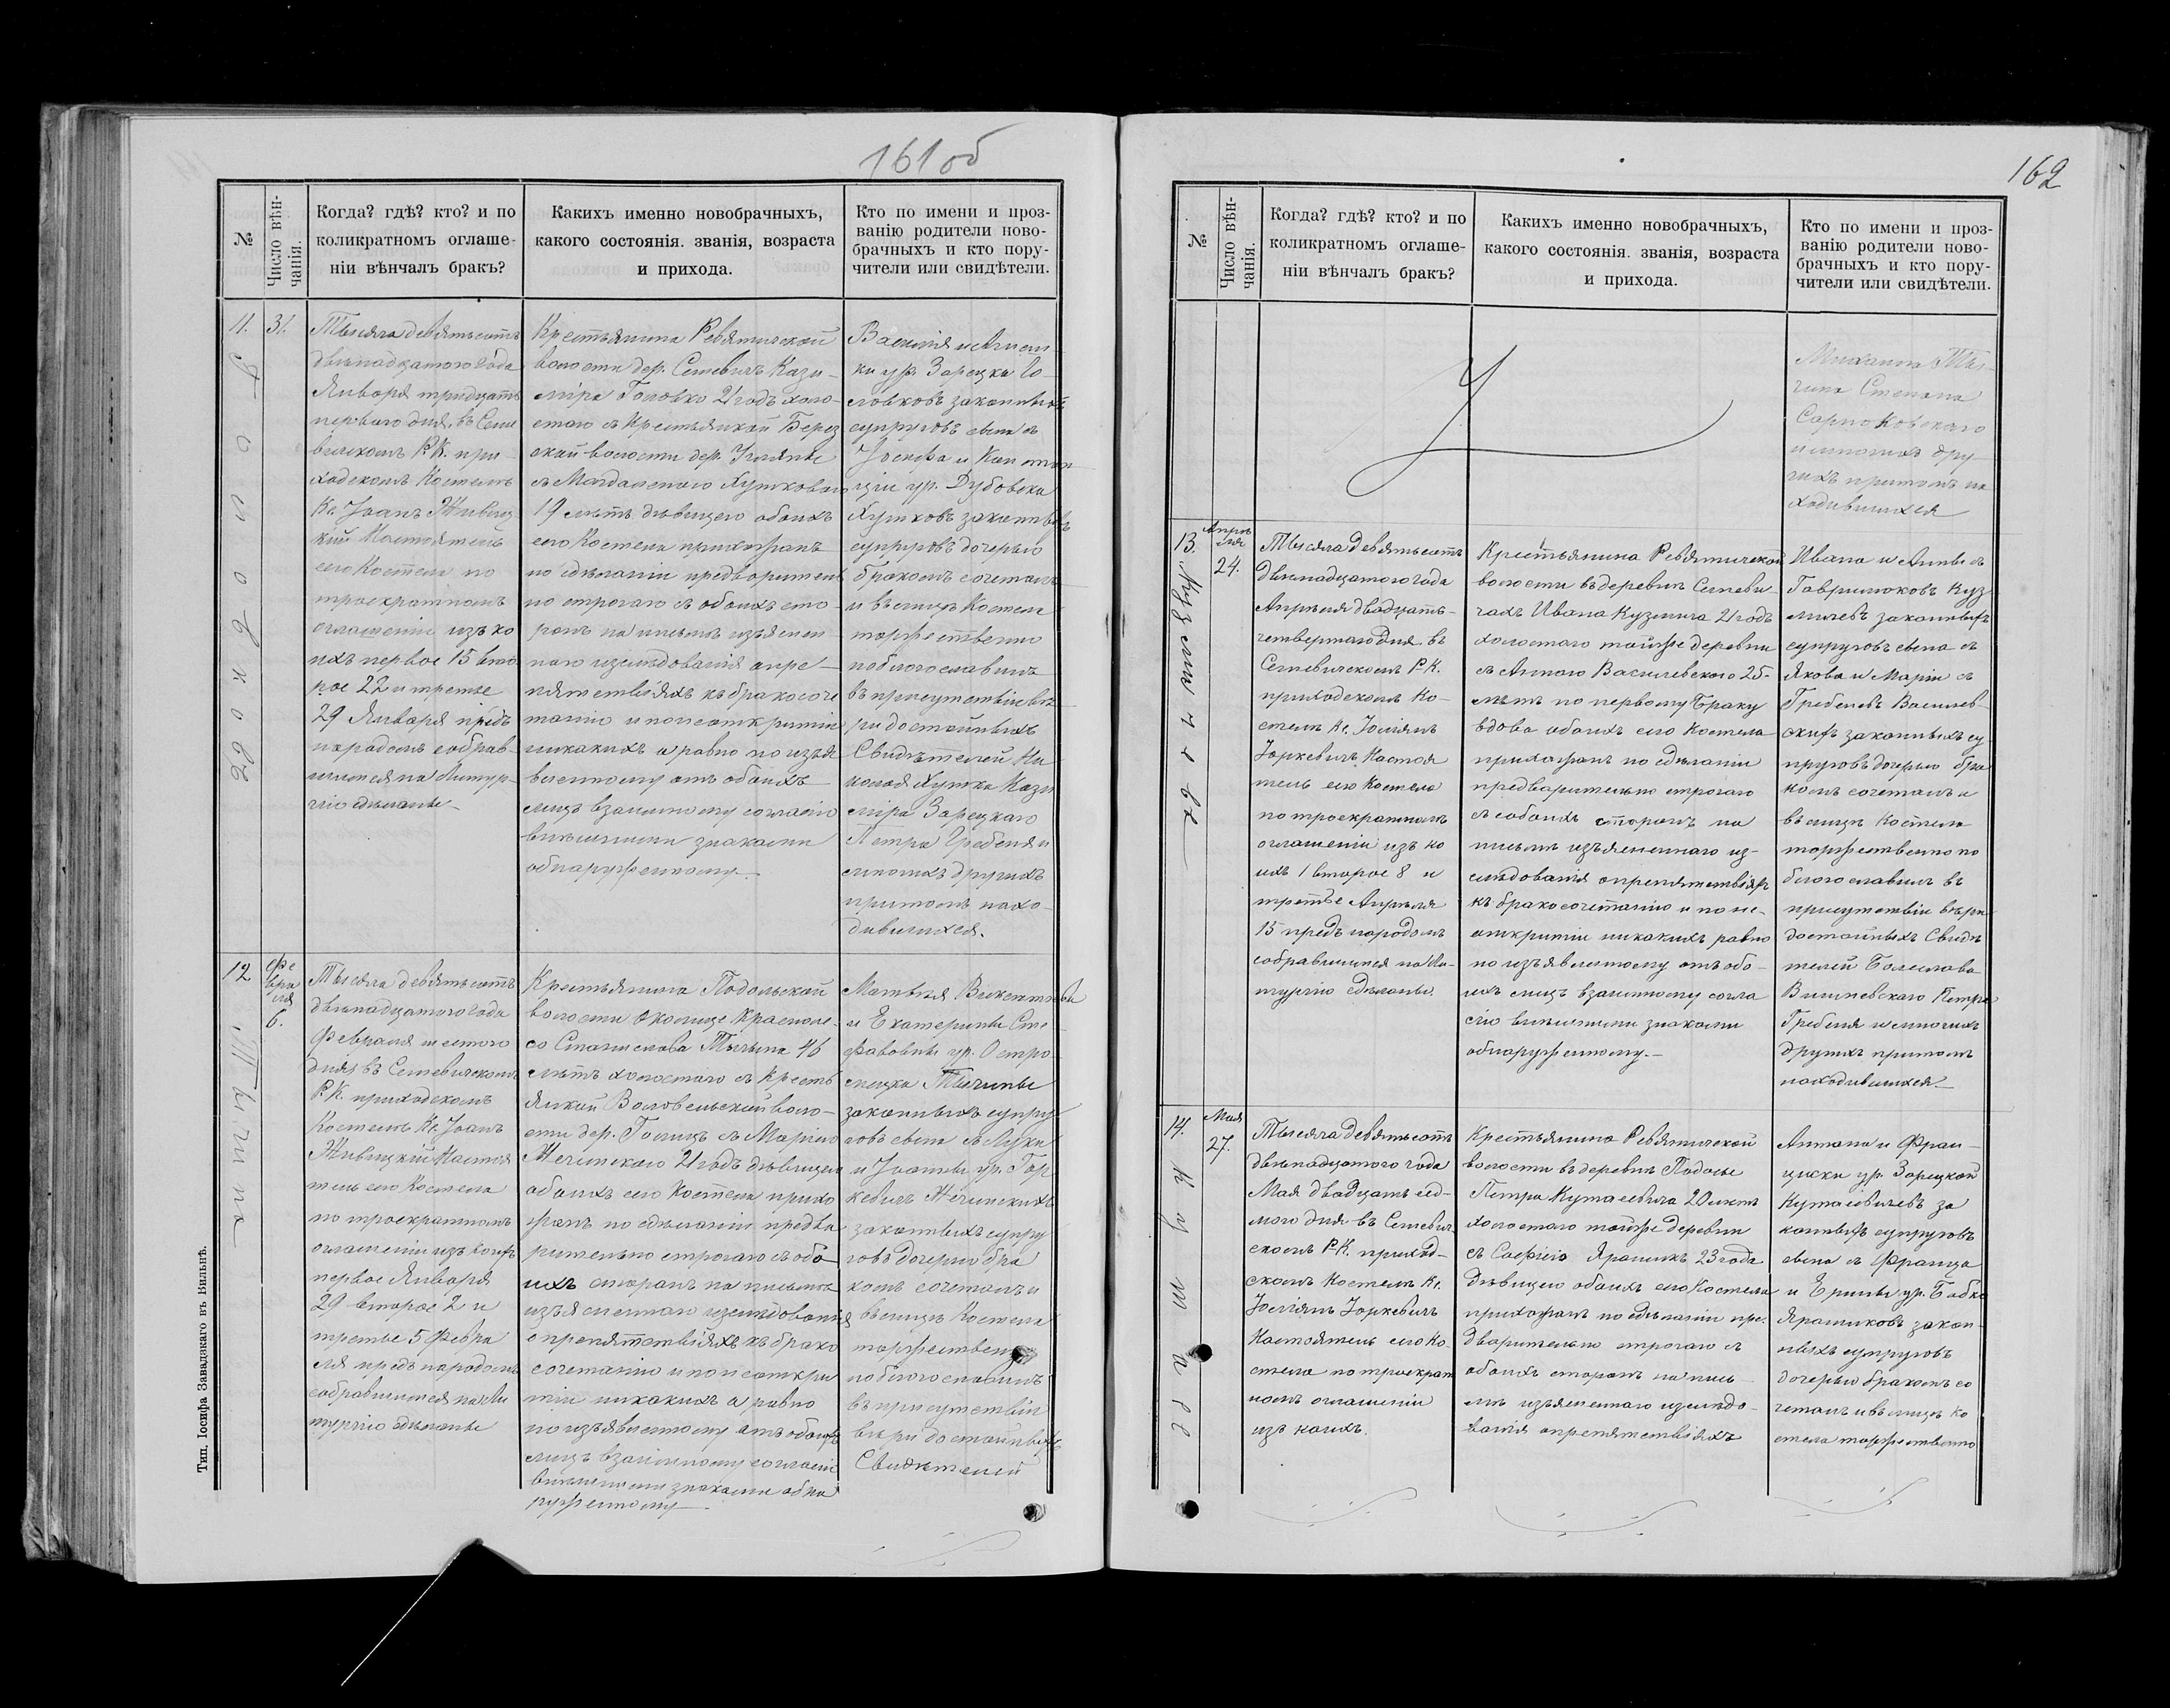 161 об
№
Число вѣн-
чанія.
Когда? гдѣ? кто? и по
коликратномъ оглаше-
ніи вѣнчалъ бракъ?
Какихъ именно новобрачныхъ,
какого состоянія. званія, возраста
и прихода.
Кто по имени и проз-
ванію родители ново-
брачныхъ и кто пору-
чители или свидѣтели.
11.
31.
Головковъ
Тысяча девятьсотъ
двѣнадцатого года
Января тридцать
первого дня, въ Сене
вичскомъ Р.К. при-
ходскомъ Костелѣ
Кс. Іоанъ Живиц
кій Настоятель
сего Костела по
троекратномъ
оглашеніи изъ ко
ихъ первое 15 вто
рое 22 и третье
29 Января предъ
народомъ собрав-
шимся на Литур-
гію сдѣланы
Крестьянина Ревятичской
волости дер. Сеневичъ Кази-
міра Головко 21 годъ холо-
стого съ Крестьянкой Берез
ской волости дер. Угляны
съ Магдаленою Хутковою
19 лѣтъ дѣвицею обоихъ
сего Костела прихожанъ
по сдѣланіи предворитель
но строгаго съ обоихъ сто-
ронъ на письмѣ изъяснен-
наго изслѣдованія о пре-
пятствіяхъ къ бракосоче
танію и по неоткритіи
никакихъ а равно по изъя
вленному отъ обоихъ
лицъ взаимному согласію
внѣшними знаками
обнаруженному.
Василія и Агнеш-
ки ур. Зарецка Го-
ловковъ законныхъ
супруговъ сына съ
Іосифа и Констан
ціи ур. Дубовска
Хутковъ законныхъ
супруговъ дочерью
бракомъ сочеталъ
и въ лицѣ Костела
торжественно
поблогославилъ
въ присутствіи вѣ
ри достойныхъ
Свидѣтелей Ни
колая Хутка Кази
міра Зарецкаго
Петра Гребеня и
многихъ другихъ
притомъ нахо-
дившихся.
12
Фе
вра
ля
6.
Тычина
Тысяча девятьсотъ
двѣнадцатого года
Февраля шестого
дня, въ Сеневичскомъ
Р.К. приходскомъ
Костелѣ Кс. Іоанъ
Живицкій Настоя
тель сего Костела
по троекратномъ
оглашеніи изъ коихъ
первое Января
29 второе 2 и
третье 5 Февра
ля предъ народомъ
собравшимся на Ли
тургію сдѣланы
Крестьянина Подольской
волости околице Красноле-
со Станислава Тычына 46
лѣтъ холостого съ Кресть
янкой Воловельской воло-
сти дер. Голицъ съ Маріею
Жечинскаго 21 годъ дѣвицею
обоихъ сего Костела прихо
жанъ по сдѣланіи предва
рительно строгаго съ обо
ихъ сторонъ на письмѣ
изъясненнаго изслѣдованія
о препятствіяхъ къ брако
сочетанію и по неоткри
тіи никакихъ а равно
по изъявленному отъ обоихъ
лицъ взаимному согласію
внѣшними знаками обна
руженному.
Матвѣя Викентьева
и Екатерины Сте
фановны ур. Остро-
мецка Тычины
законныхъ супру
говъ сына съ Луки
и Іоанны ур. Гор
кевичъ Жечинскихъ
законныхъ супру
говъ дочерью бра
комъ сочеталъ и
въ лицѣ Костела
торжественно
поблогославилъ
въ присутствіи
вѣри достойныхъ
Свидѣтелей
Тип. Іосифа Завадзкаго въ Вильнѣ.
162
№
Число вѣн-
чанія.
Когда? гдѣ? кто? и по
коликратномъ оглаше-
ніи вѣнчалъ бракъ?
Какихъ именно новобрачныхъ,
какого состоянія. званія, возраста
и прихода.
Кто по имени и проз-
ванію родители ново-
брачныхъ и кто пору-
чители или свидѣтели.
Михаила Ты-
чина Степана
Сарноковскаго
и многихъ дру
гихъ притомъ на
ходившихся
13.
Апрѣ
ля
24.
Кузмичовъ
Тысяча девятьсотъ
двѣнадцатого года
Апрѣля двадцать-
четвертаго дня въ
Сеневичскомъ Р.К.
приходскомъ Ко-
стелѣ Кс. Юліянъ
Юркевичъ Настоя
тель сего Костела
по троекратномъ
оглашеніи изъ ко
ихъ 1 второе 8 и
третье Апрѣля
15 предъ народомъ
собравшимся на Ли-
тургію сдѣланы.
Крестьянина Ревятичской
волости въ деревнѣ Сеневи-
чахъ Ивана Кузмича 21 годъ
холостаго тойже деревни
съ Анною Василевского 25-
лѣтъ по первому браку
вдова обоихъ сего Костела
прихожанъ по сдѣланіи
предварительно строгаго
съ обоихъ сторонъ на
письмѣ изъясненнаго из-
слѣдованія о препятствіяхъ
къ бракосочетанію и по не-
откритіи никакихъ равно
по изъявленному отъ обо-
ихъ лицъ взаимному согла
сію внѣшними знаками
обнаруженному.
Ивана и Анны съ
Гаврилюковъ Куз
мичевъ законныхъ
супруговъ сына съ
Якова и Маріи съ
Гребеневъ Василев-
скихъ законныхъ су
пруговъ дочерью бра
комъ сочеталъ и
въ лицѣ Костела
торжественно по
блогославилъ въ
присутствіи вѣри
достойныхъ Свидѣ
телей Болеслава
Вишневскаго Петра
Гребеня и многихъ
другихъ притомъ
находившихся
14.
Мая
27.
Тысяча девятьсотъ
двѣнадцатого года
Мая двадцать сед-
мого дня въ Сеневич
скомъ Р.К. приход-
скомъ Костелѣ Кс.
Юліянъ Юркевичъ
Настоятель сего Ко-
стела по троекрат
номъ оглашеніи
изъ коихъ.
Крестьянина Ревятичской
волости въ деревнѣ Подосье
Петра Кутасевича 20 лѣтъ
холостого тойже деревни
съ Софіею Ярашикъ 23 года
дѣвицею обоихъ сего Костела
прихожанъ по сдѣланіи пре-
дварительно строгаго съ
обоихъ сторонъ на пись
мѣ изъясненнаго изслѣдо-
ванія о препятствіяхъ
Антона и Фран-
циски ур. Зарецкой
Кутасевичевъ за
конныхъ супруговъ
сына съ Франца
и Ерины ур. Бабко
Ярашиковъ закон-
ныхъ супруговъ
дочерью бракомъ со
четалъ и въ лицѣ Ко
стела торжественно